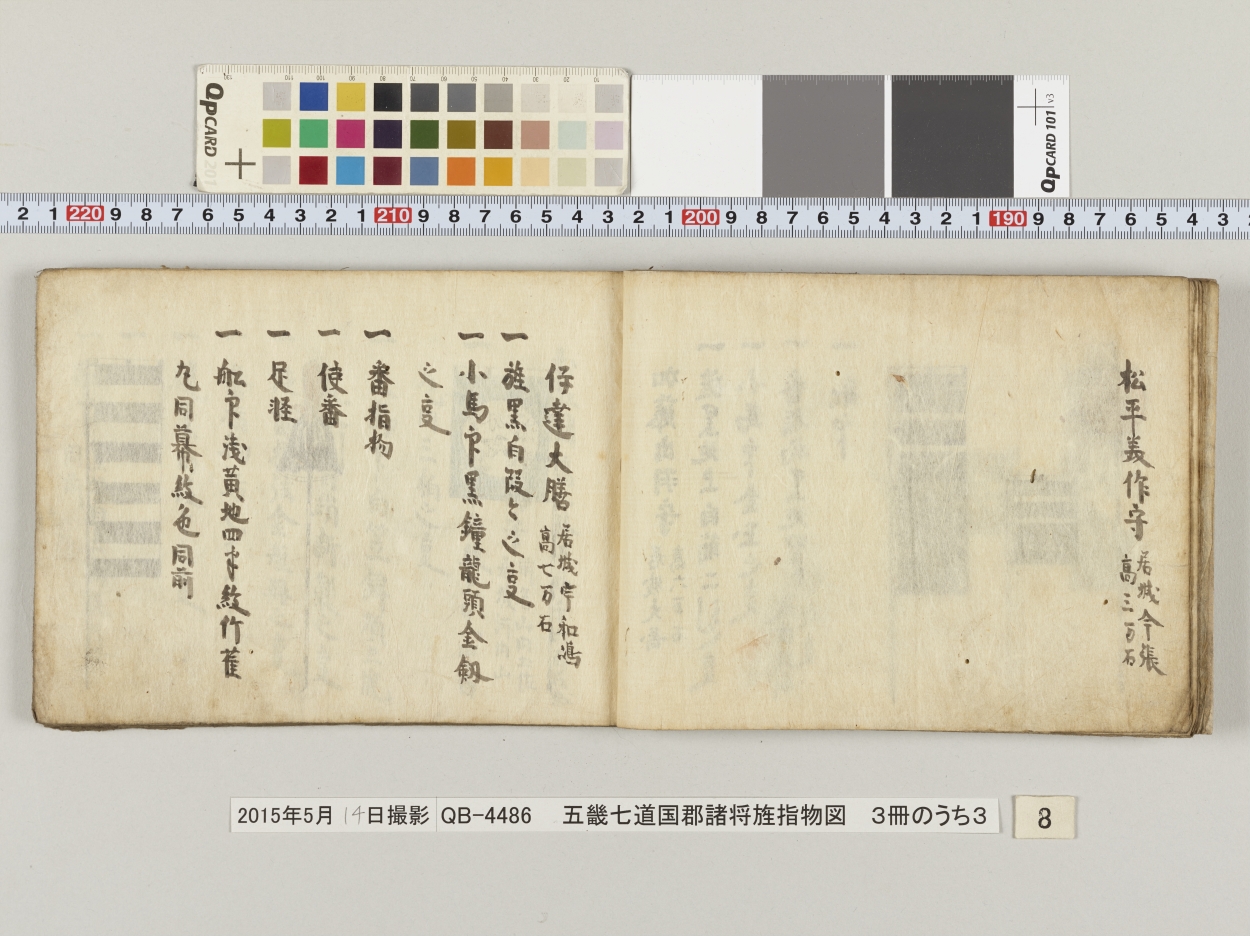 QpCARD 201
QpCARD 101 v3
2 1 220 9 8 7 6 5 4 3 2 1 210 9 8 7 6 5 4 3 2 1 200 9 8 7 6 5 4 3 2 1 190 9 8 7 6 5 4 3
松平美作守 居城今張
高三万石
伊達大膳 居城宇和嶋
高七万石
一 旌黒白段々之宴
一 小馬印黒鐘龍頭金釼
之宴
一 番指物
一 使番
一 足軽
一 舩印浅黄地四半紋竹雀
丸同幕紋色同前
2015年5月14日撮影 QB-4486 五畿七道国郡諸将旌指物図 3冊のうち3
8